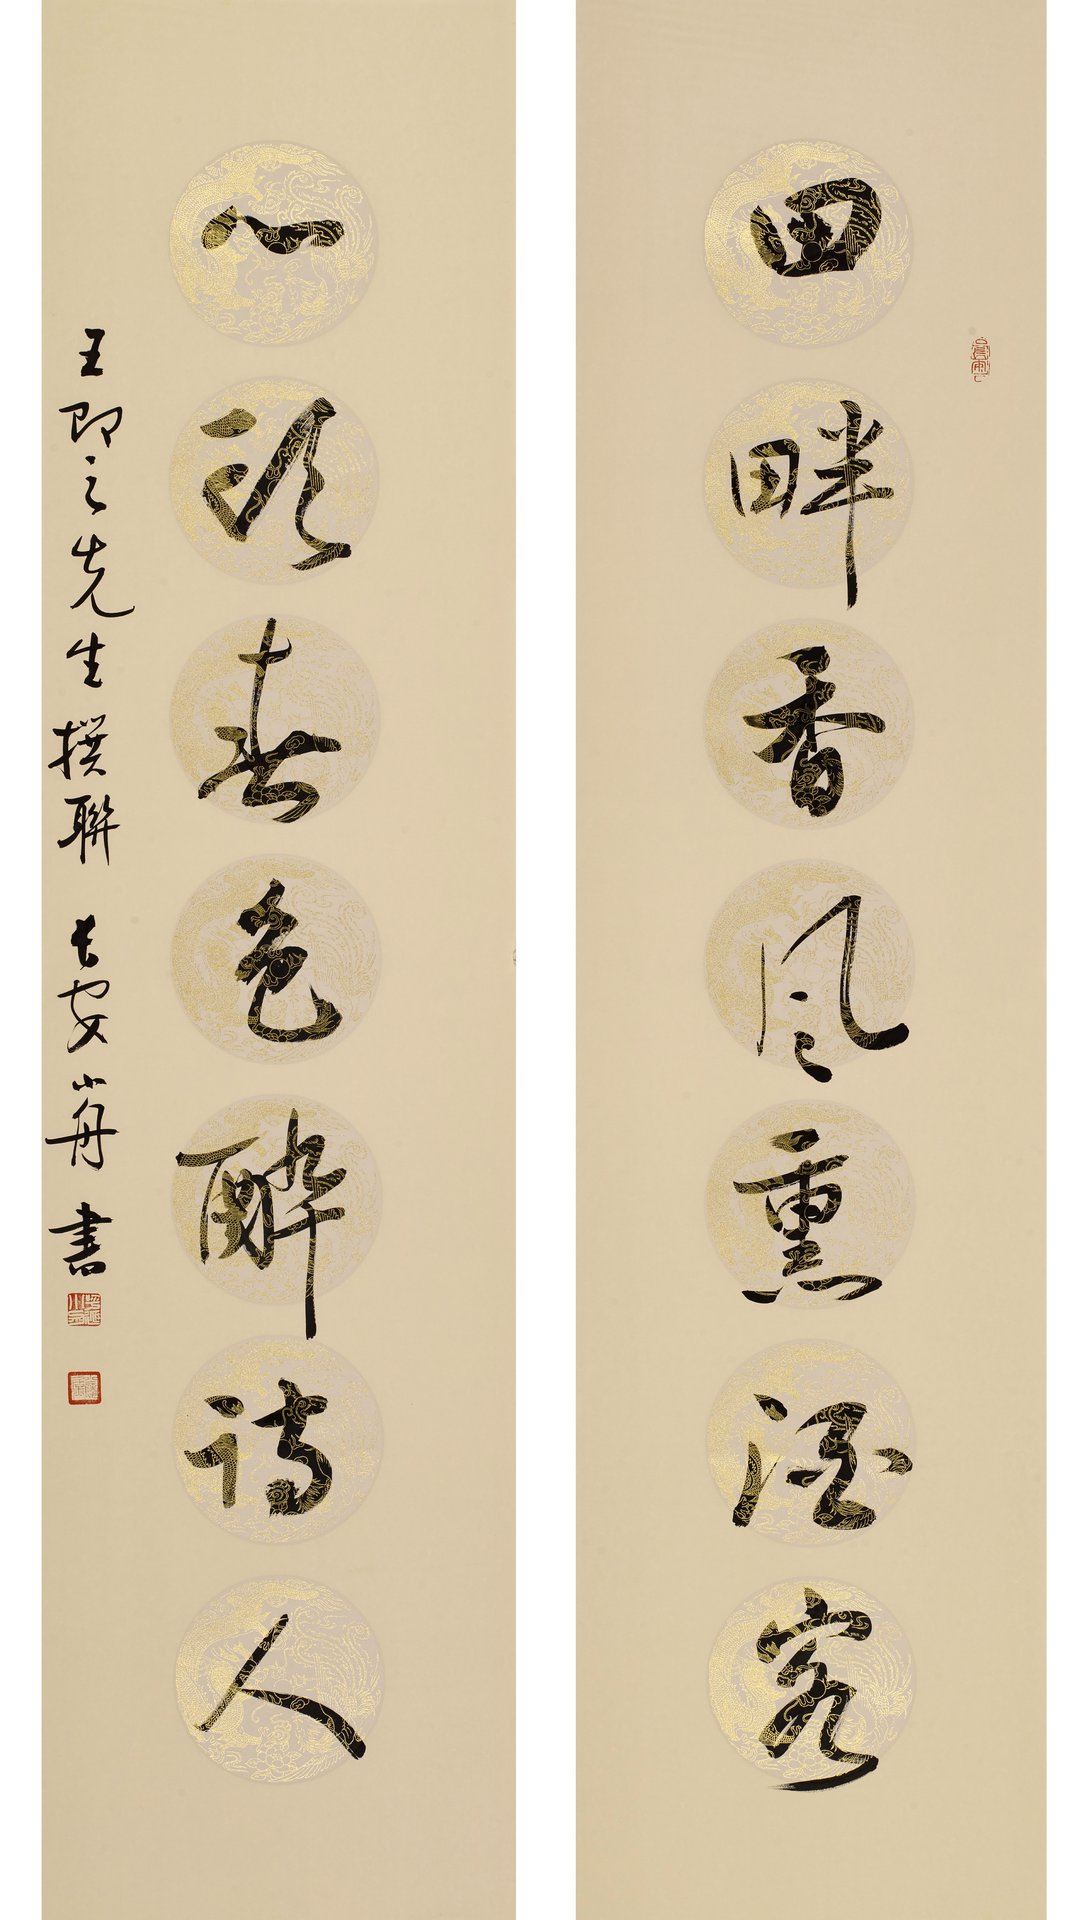 田畔香风熏酒客
心头春色醉诗人
王即之先生撰联 长安小舟 书